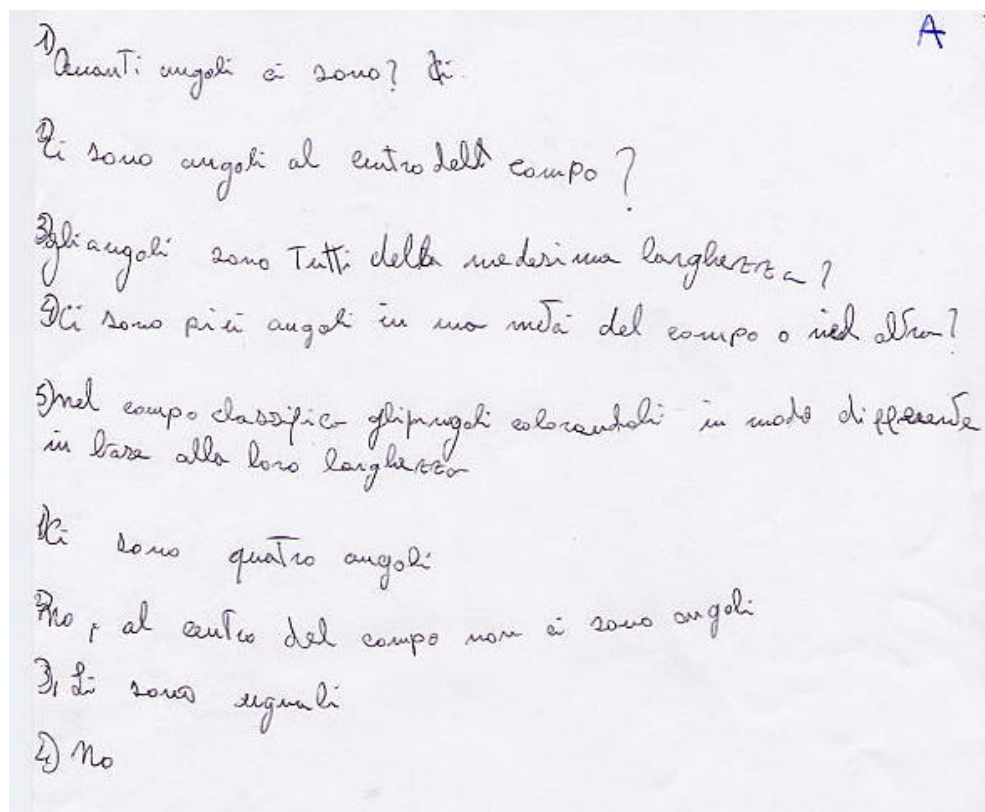 A
1) Quanti angoli ci sono?
2) Ci sono angoli al centro dell campo?
3) gli angoli sono Tutti della medesima larghezza?
4) Ci sono più angoli in una metà del campo o nel altra?
5) nel campo classifico gli angoli colorandoli in modo differente
in base alla loro larghezza
1) Ci sono quatro angoli
2) No, al centro del campo non ci sono angoli
3) Si sono uguali
4) No